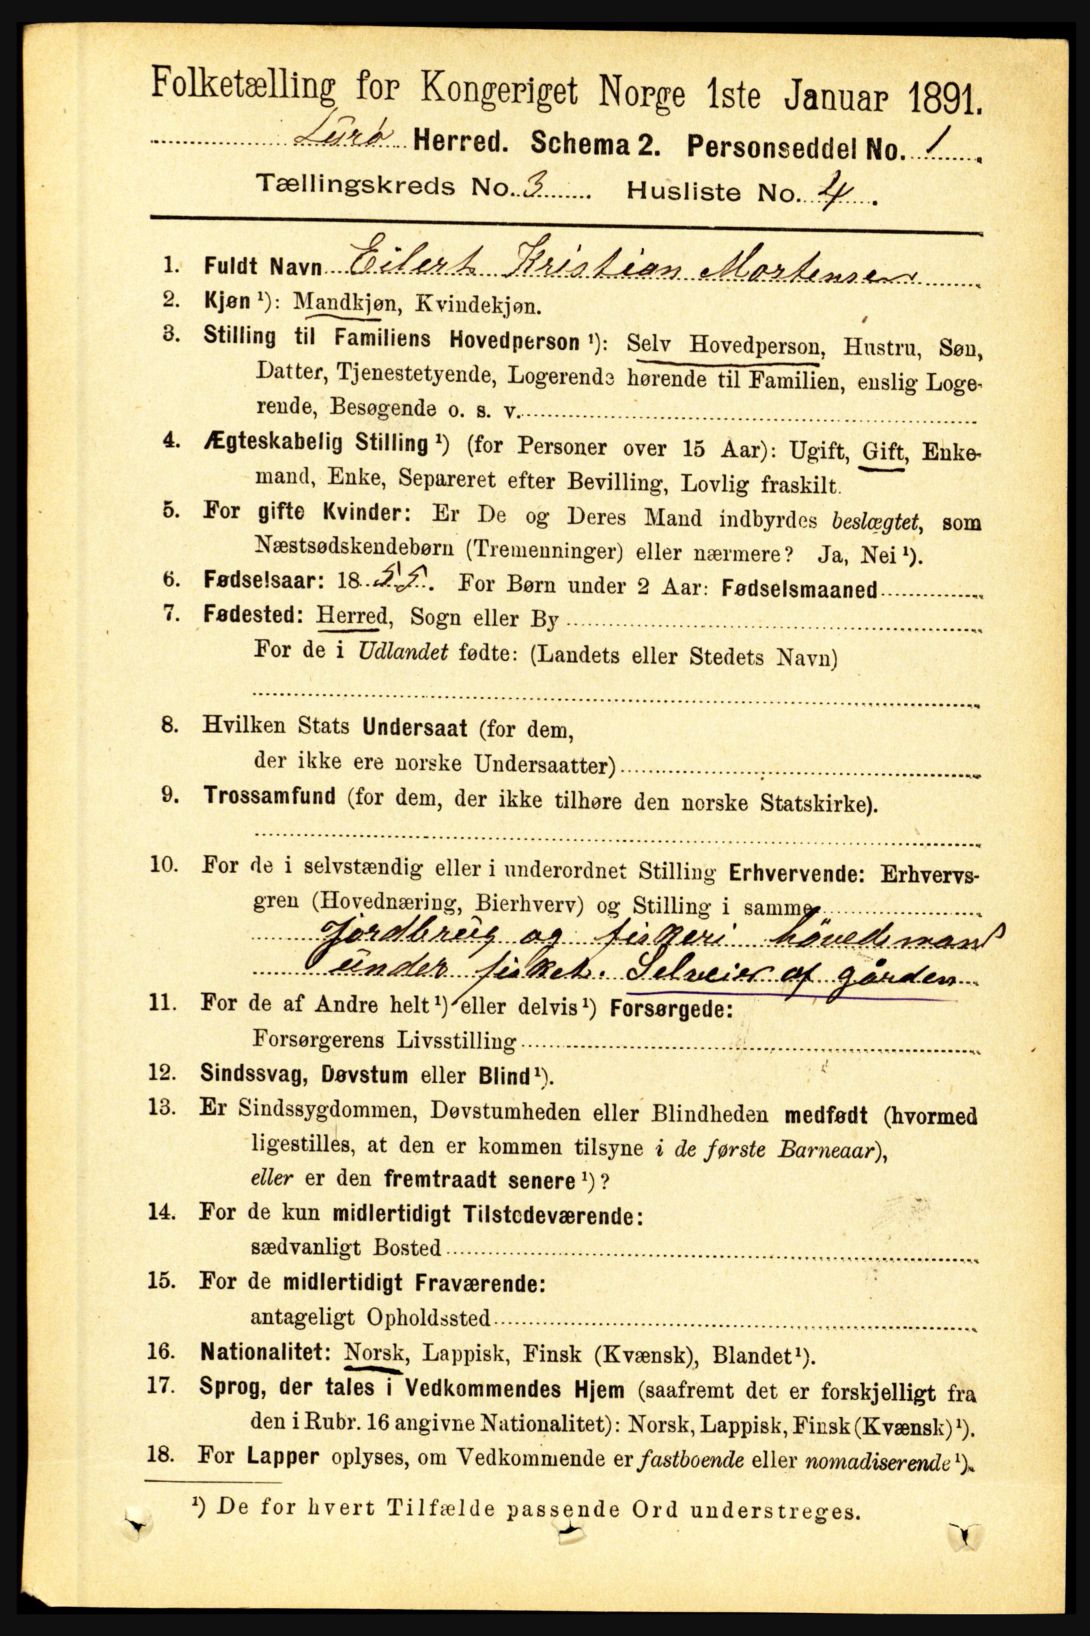 Folketælling for Kongeriget Norge 1ste Januar 1891.
Lurø Herred. Schema 2. Personseddel No. 1
Tællingskreds No. 3 Husliste No. 4.
1. Fuldt Navn Eilert Kristian Mortensen
2. Kjøn ¹): Mandkjøn, Kvindekjøn.
3. Stilling til Familiens Hovedperson ¹): Selv Hovedperson, Hustru, Søn,
Datter, Tjenestetyende, Logerende hørende til Familien, enslig Loge-
rende, Besøgende o. s. v.
4. Ægteskabelig Stilling ¹) (for Personer over 15 Aar): Ugift, Gift, Enke-
mand, Enke, Separeret efter Bevilling, Lovlig fraskilt.
5. For gifte Kvinder: Er De og Deres Mand indbyrdes beslægtet, som
Næstsødskendebørn (Tremenninger) eller nærmere? Ja, Nei ¹).
6. Fødselsaar: 1855. For Børn under 2 Aar: Fødselsmaaned
7. Fødested: Herred, Sogn eller By
For de i Udlandet fødte: (Landets eller Stedets Navn)
8. Hvilken Stats Undersaat (for dem,
der ikke ere norske Undersaatter)
9. Trossamfund (for dem, der ikke tilhøre den norske Statskirke).
10. For de i selvstændig eller i underordnet Stilling Erhvervende: Erhvervs-
gren (Hovednæring, Bierhverv) og Stilling i samme
Jordbrug og fiskeri hövedsmand
under fisket. Selveier af gården
11. For de af Andre helt ¹) eller delvis ¹) Forsørgede:
Forsørgerens Livsstilling
12. Sindssvag, Døvstum eller Blind ¹).
13. Er Sindssygdommen, Døvstumheden eller Blindheden medfødt (hvormed
ligestilles, at den er kommen tilsyne i de første Barneaar),
eller er den fremtraadt senere ¹)?
14. For de kun midlertidigt Tilstedeværende:
sædvanligt Bosted
15. For de midlertidigt Fraværende:
antageligt Opholdssted
16. Nationalitet: Norsk, Lappisk, Finsk (Kvænsk), Blandet ¹).
17. Sprog, der tales i Vedkommendes Hjem (saafremt det er forskjelligt fra
den i Rubr. 16 angivne Nationalitet): Norsk, Lappisk, Finsk (Kvænsk) ¹).
18. For Lapper oplyses, om Vedkommende er fastboende eller nomadiserende ¹).
¹) De for hvert Tilfælde passende Ord understreges.